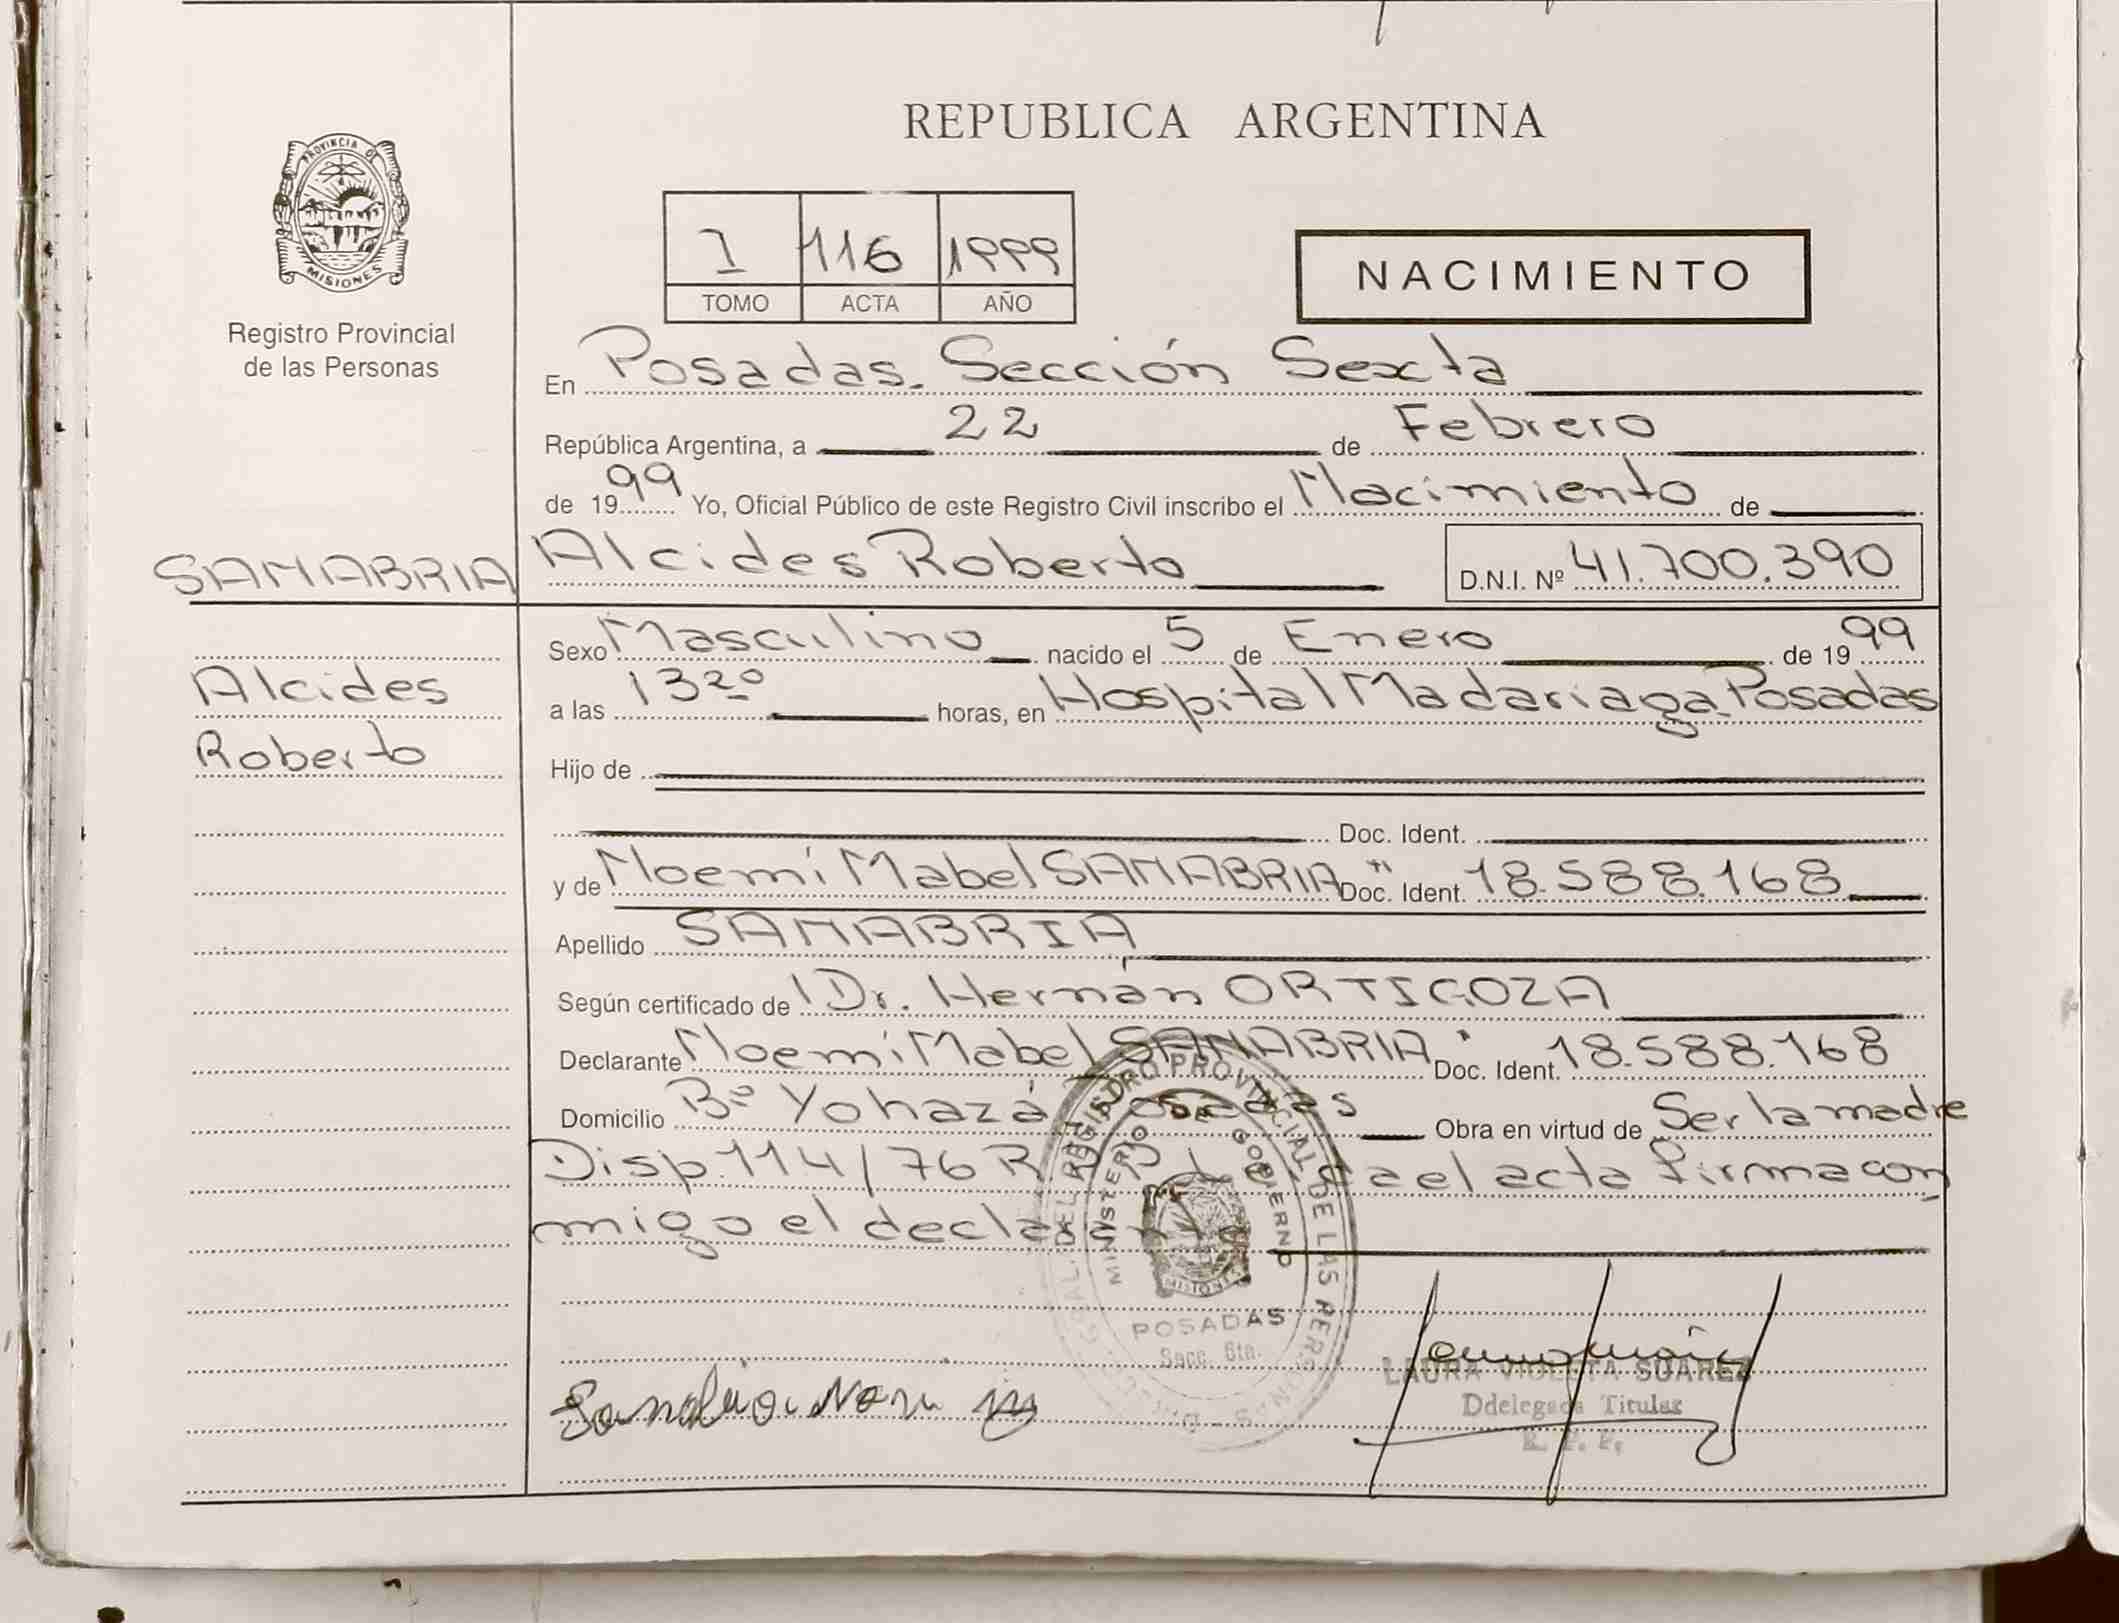 REPUBLICA ARGENTINA
PROVINCIA DE
MISIONES
Registro Provincial
de las Personas
I 116 1999
TOMO ACTA AÑO
NACIMIENTO
En Posadas. Sección Sexta
República Argentina, a 22 de Febrero
de 1999 Yo, Oficial Público de este Registro Civil inscribo el Nacimiento de
SANABRIA Alcides Roberto D.N.I. Nº 41.700.390
Sexo Masculino nacido el 5 de Enero de 1999
Alcides
a las 13 20 horas, en Hospital Madariaga Posadas
Roberto
Hijo de
Doc. Ident.
y de Noemí Mabel SANABRIA Doc. Ident. 18.588.168
Apellido SANABRIA
Según certificado de Dr. Hernán ORTIGOZA
Declarante Noemí Mabel SANABRIA Doc. Ident. 18.588.168
Domicilio Bº Yohazá Posadas Obra en virtud de Ser la madre
Disp. 114/76 R el acta firma con
migo el declarante
REGISTRO PROVINCIAL DE LAS PERSONAS
MINISTERIO DE GOBIERNO
POSADAS
Secc. 6ta.
LAURA VIOLETA SUAREZ
Ddelegada Titular
R. P. P.